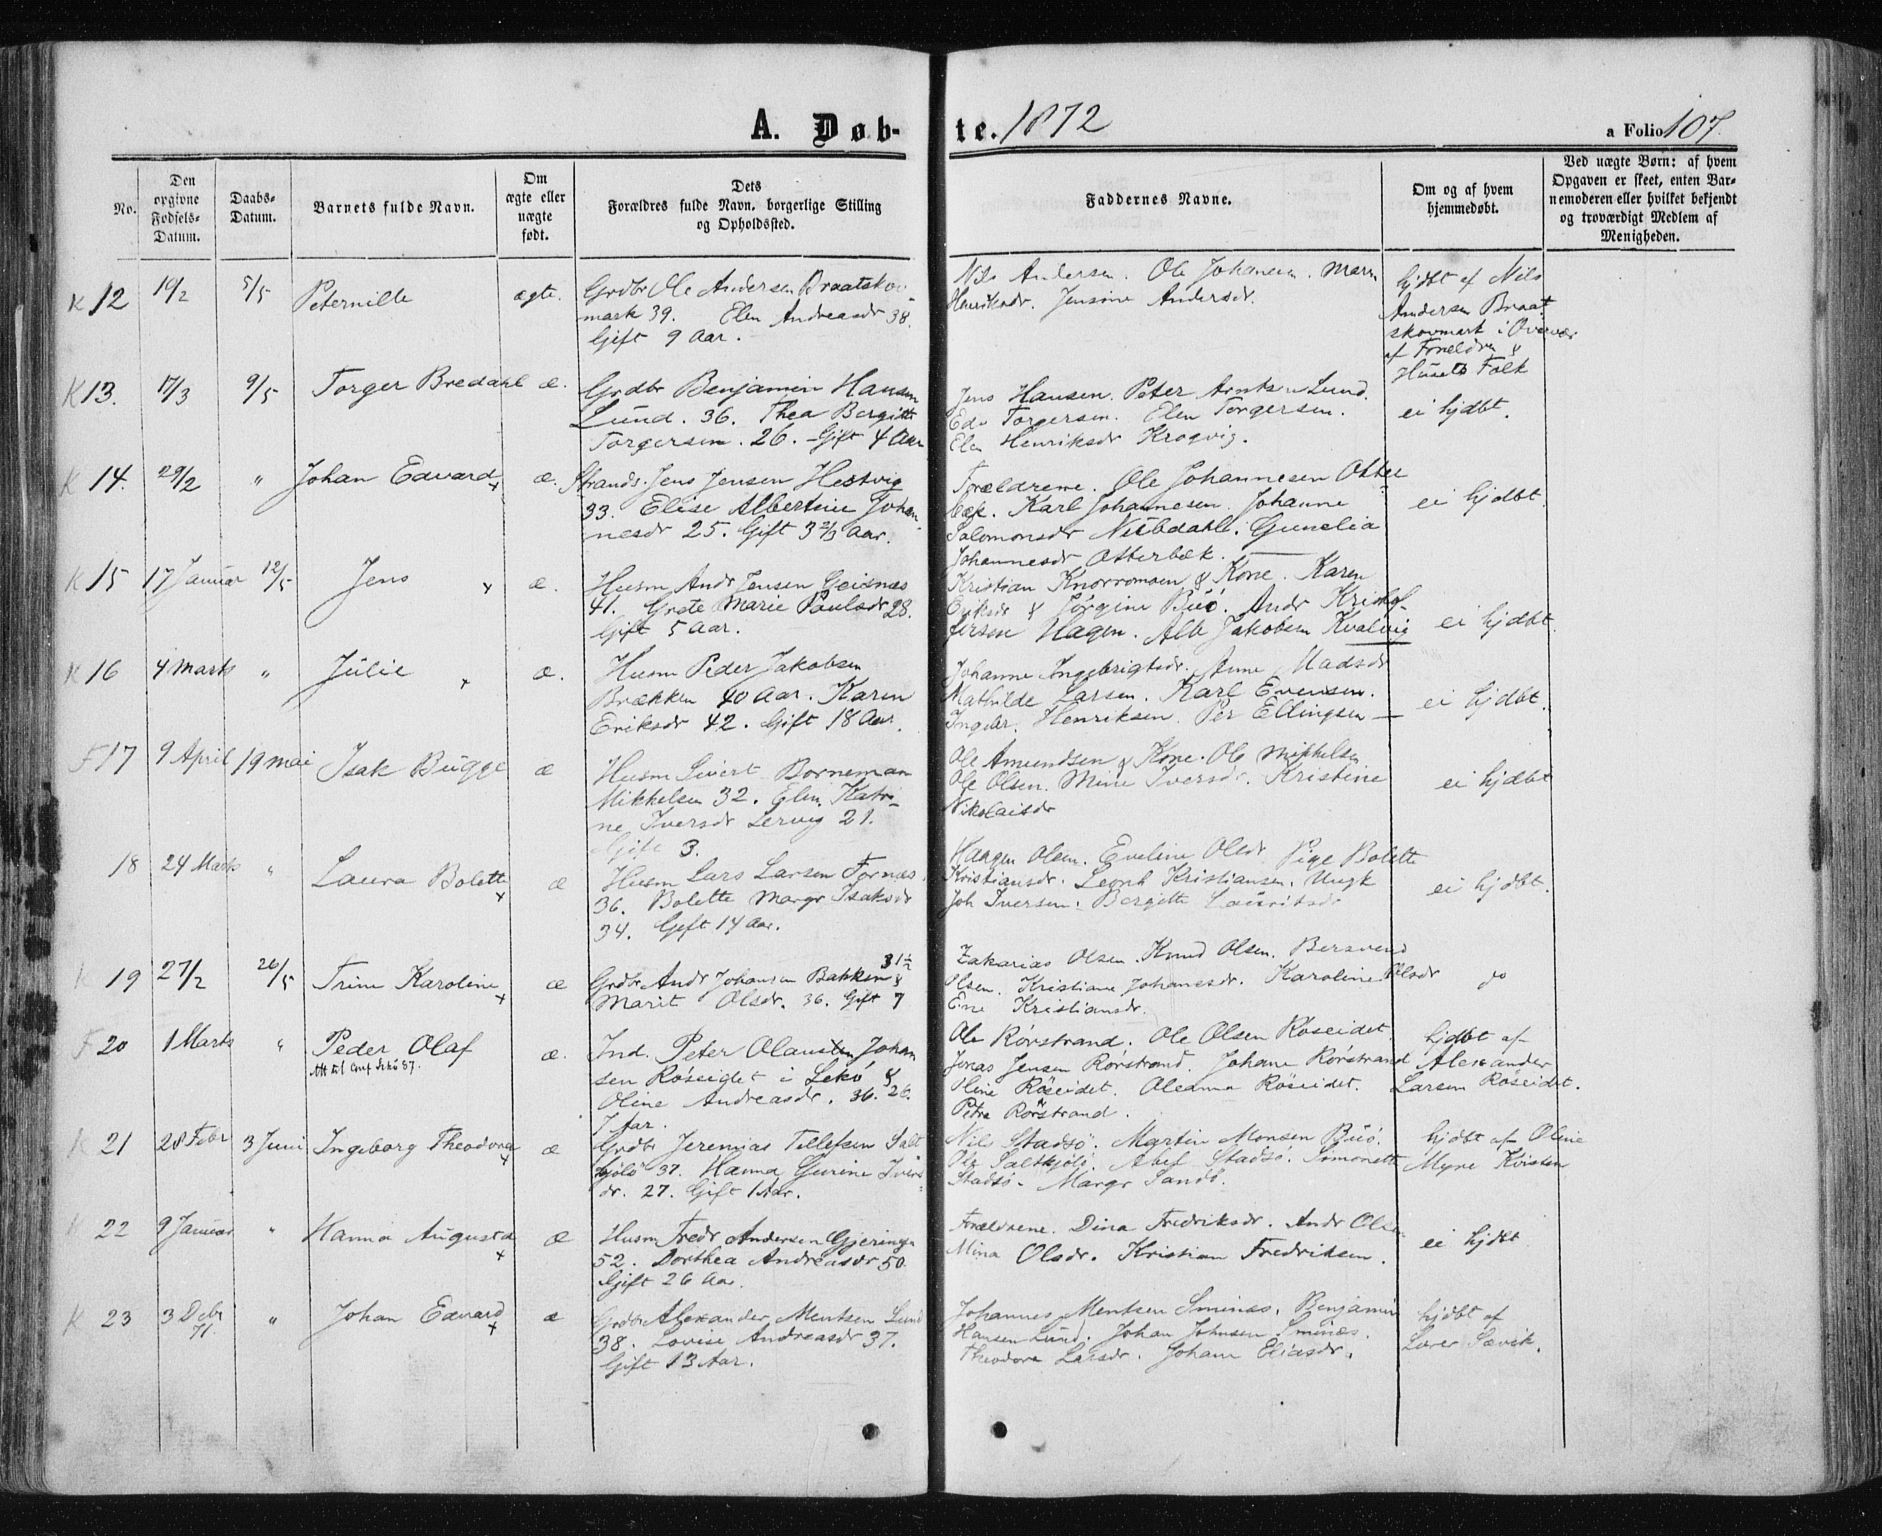 A. Døbte. 1872
a Folio 107.
No.
Den opgivne Fødsels-Datum.
Daabs-Datum.
Barnets fulde Navn.
Om ægte eller uægte født.
Dets Forældres fulde Navn, borgerlige Stilling og Opholdssted.
Faddernes Navne.
Om og af hvem hjemmedøbt.
Ved uægte Børn: af hvem Opgaven er skeet, enten Barnemoderen eller hvilket bekjendt og troværdigt Medlem af Menigheden.
K 12 19/2 5/5 Peternille ægte.
Grdbr Ole Andersen Braatskov-
mark 39. Elen Andreasdr 38.
Gift 9 Aar.
Nils Andersen. Ole Johansen. Maren
Henriksdr. Jensine Andersdr.
hjdbt af Nils
Andersen Braat
skovmark i Overvær
af Forældre &
Husets Folk
K 13. 17/3 9/5 Torger Bredahl æ.
Grdbr Benjamin Hansen
Lund. 36. Thea Bergitte
Torgersen. 26. Gift 4 Aar
Jens Hansen. Peter Arntsen Lund.
Edv Torgersen. Elen Torgersen.
Elen Henriksdr Krogvig.
ei hjdbt.
K 14. 29/2 " Johan Edvard + æ.
Strands. Jens Jensen Hestvig
33. Elise Albertine Johan
nesdr 25. Gift 3 2/3 Aar.
Forældrene. Ole Johannesen Otter
bæk. Karl Johannesen. Johanne
Salomonsdr Nubdahl. Gunelia
Johannesdr Otterbæk.
ei hjdbt.
K 15 17 Januar 12/5 Jens + æ.
Husm Andr Jensen Geisnæs
41. Grete Marie Paulsdr 28.
Gift 5 Aar.
Kristian Knorromoen & Kone. Karen
Eriksdr & Jørgine Buø. Andr Kristof-
fersen Hagen. Alb Jakobsen Kvalvig
ei hjdbt.
K 16 4 Marts " Julie + æ.
Husm Peder Jakobsen
Brækken 40 Aar. Karen
Eriksdr 42. Gift 18 Aar.
Johanne Ingebrigtsdr. Anne Madsdr
Mathilde Larsen. Karl Evensen.
Ingebr. Henriksen. Per Ellingsen
ei hjdbt.
F 17 9 April 19 Mai Isak Bugge æ
Husm Sivert Borneman
Mikkelsen 32. Elen Katri-
ne Iversdr Lervig 21.
Gift 3.
Ole Amundsen & Kone. Ole Mikkelsen
Ole Olsen. Mine Iversdr. Kristine
Nikolaisdr
ei hjdbt
18 24 Marts " Laura Bolette + æ
Husm Lars Larsen Fornæs.
36. Bolette Margr Isaksdr
34. Gift 14 Aar.
Haagen Olsen. Eveline Olsdr Pige Bolette
Kristiansdr. Leonh Kristiansen. Ungk
Joh Iversen. Bergitte Lauritsdr
ei hjdbt.
K 19 27/2 26/5 Trine Karoline + æ
Grdbr Andr Johansen Bakken 31 1/2 &
Marit Olsdr. 36. Gift 7
Zakarias Olsen. Knud Olsen. Bersvend
Olsen. Kristiane Johanesdr. Karoline Olsdr
Ene Kristiansdr.
do
F 20 1 Marts " Peder Olaf æ.
Att til Conf Lekø 87.
Ind. Peter Olausen Johan
sen Røseidet i Lekø &
Oline Andreasdr. 36. 26.
7 Aar.
Ole Rørstrand. Ole Olsen Røseidet.
Jonas Jensen Rørstrand. Johane Rørstrand
Oline Røseidet. Oleanna Røseidet.
Petra Rørstrand.
hjdbt af
Alexander
Larsen Røseidet.
K 21 28 Febr 3 Juni Ingeborg Theodora + æ
Grdbr Jeremias Tellefsen Salt
kjølø 37. Hanna Gurine Ivers
dr. 27. Gift 1 Aar.
Nils Stadsø. Martin Monsen Buø.
Ole Saltkjølø. Abel Stadsø. Simonette
Stadsø. Margr Sandø.
hjdbt af Oline
Myre Kvisten
K 22 9 Januar " Hanna Augusta + æ
Husm Fredr Andersen Gjeringen
52. Dorthea Andreasdr 50
Gift 26 Aar.
Forældrene. Dina Fredriksdr. Andr Olsen
Mina Olsdr. Kristian Fredriksen.
ei hjdbt
K 23 3 Debr 71. " Johan Edvard + æ
Grdbr Alexander Mentsen Lund
38. Lovise Andreasdr 37.
Gift 13 Aar.
Johannes Mentsen Sminæs. Benjamin
Hansen Lund. Johan Johnsen Sminæs.
Theodora Larsdr. Johane Eliasdr.
hjdbt af
Lorer Sævik.